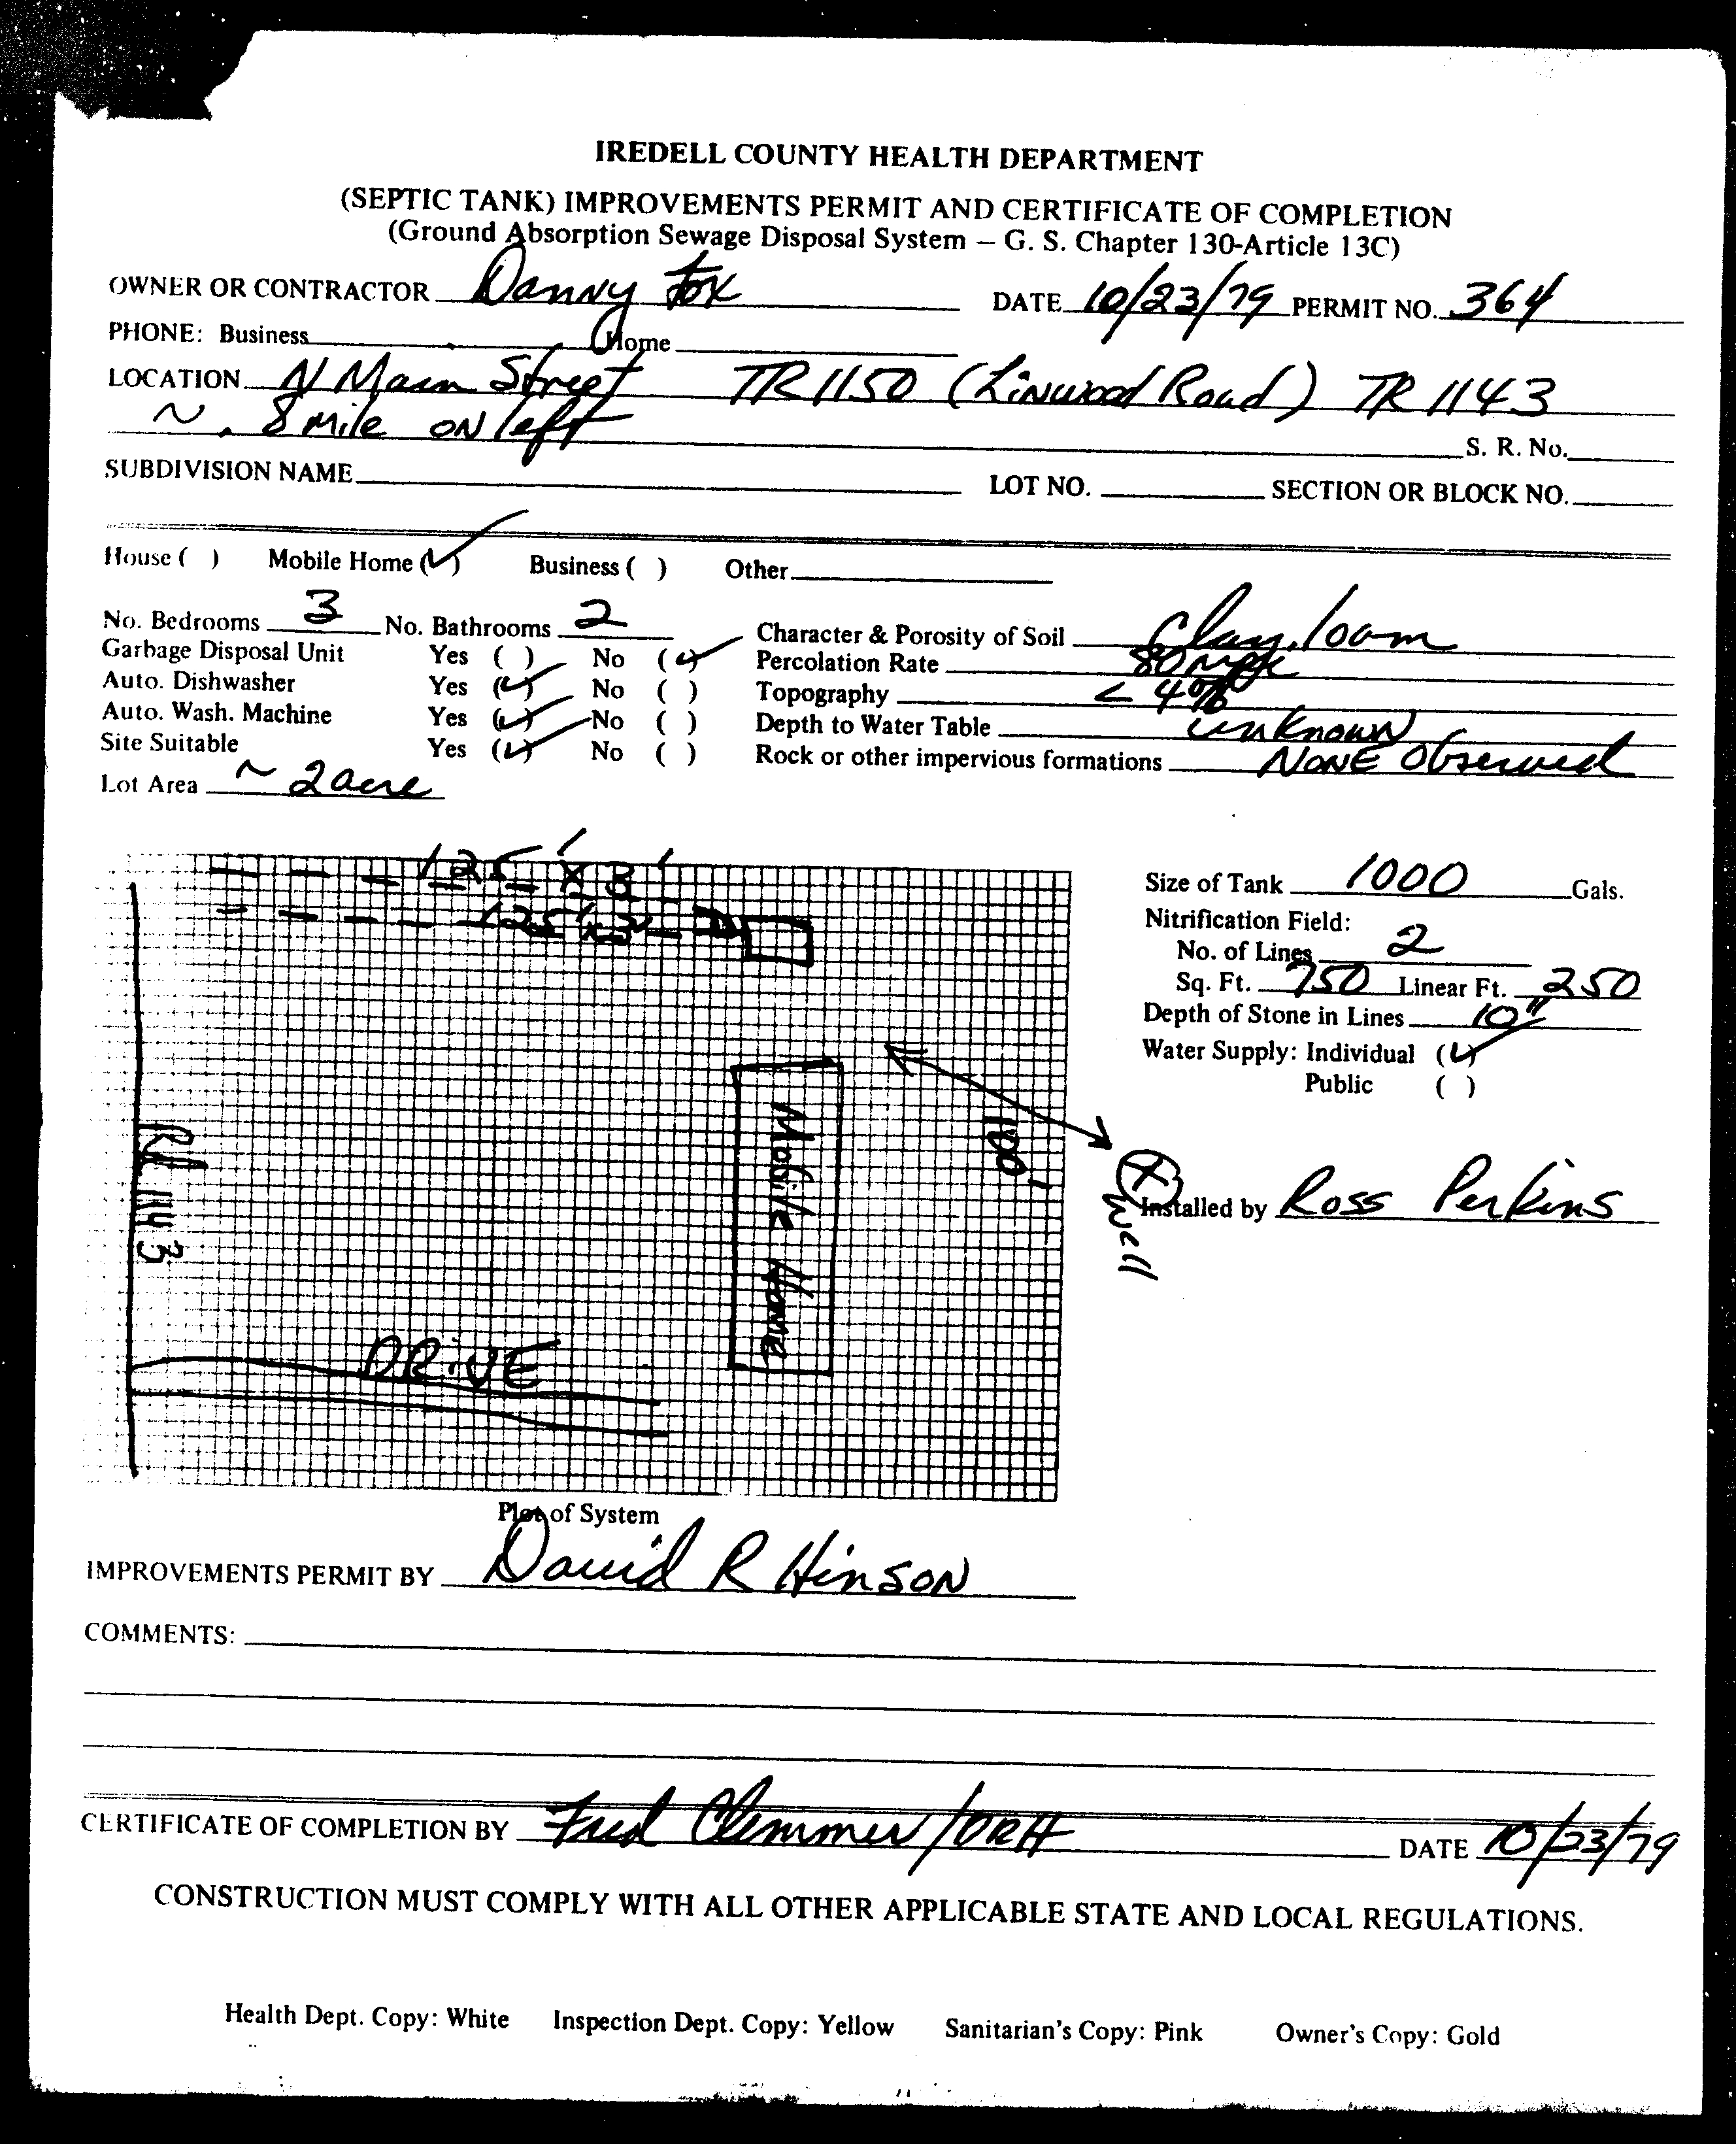 IREDELL COUNTY HEALTH DEPARTMENT
(SEPTIC TANK) IMPROVEMENTS PERMIT AND CERTIFICATE OF COMPLETION
(Ground Absorption Sewage Disposal System – G. S. Chapter 130-Article 13C)
OWNER OR CONTRACTOR Danny Fox DATE 10/23/79 PERMIT NO. 364
PHONE: Business Home
LOCATION N Main Street TR 1150 (Linwood Road) TR 1143
~ .8 mile ON left S. R. No.
SUBDIVISION NAME LOT NO. SECTION OR BLOCK NO.
House ( ) Mobile Home (✓) Business ( ) Other
No. Bedrooms 3 No. Bathrooms 2 Character & Porosity of Soil Clay, loam
Garbage Disposal Unit Yes ( ) No (✓) Percolation Rate 80 mpi
Auto. Dishwasher Yes (✓) No ( ) Topography < 4%
Auto. Wash. Machine Yes (✓) No ( ) Depth to Water Table unknown
Site Suitable Yes (✓) No ( ) Rock or other impervious formations NONE Observed
Lot Area ~ 2 acre
125' x 3'
125' x 3'
Size of Tank 1000 Gals.
Nitrification Field:
No. of Lines 2
Sq. Ft. 750 Linear Ft. 250
Depth of Stone in Lines 10"
Water Supply: Individual (✓)
Public ( )
Rd 1143
Mobile Home
100'
X
Well
Installed by Ross Perkins
DRIVE
Plot of System
IMPROVEMENTS PERMIT BY David R Hinson
COMMENTS:
CERTIFICATE OF COMPLETION BY Fred Clemmer/DRH DATE 10/23/79
CONSTRUCTION MUST COMPLY WITH ALL OTHER APPLICABLE STATE AND LOCAL REGULATIONS.
Health Dept. Copy: White Inspection Dept. Copy: Yellow Sanitarian's Copy: Pink Owner's Copy: Gold